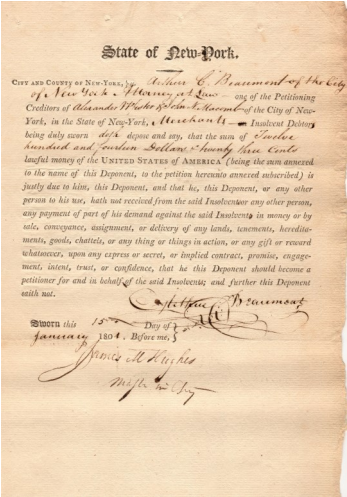 State of New-York.
CITY AND COUNTY OF NEW-YORK, ss. Arthur C. Beaumont of the City
of New York Attorney at Law — one of the Petitioning
Creditors of Alexander & John N. Macomb of the City of New-
York, in the State of New-York, Merchants — Insolvent Debtors
being duly sworn doth depose and say, that the sum of Twelve
hundred and fourteen Dollars & twenty three Cents
lawful money of the UNITED STATES OF AMERICA (being the sum annexed
to the name of this Deponent, to the petition hereunto annexed subscribed) is
justly due to him, this Deponent, and that he, this Deponent, or any other
person to his use, hath not received from the said Insolvents or any other person,
any payment of part of his demand against the said Insolvents in money or by
sale, conveyance, assignment, or delivery of any lands, tenements, heredita-
ments, goods, chattels, or any thing or things in action, or any gift or reward
whatsoever, upon any express or secret, or implied contract, promise, engage-
ment, intent, trust, or confidence, that he this Deponent should become a
petitioner for and in behalf of the said Insolvents; and further this Deponent
saith not.
Arthur C. Beaumont
SWORN this 15 Day of
January 180 Before me,
James M Hughes